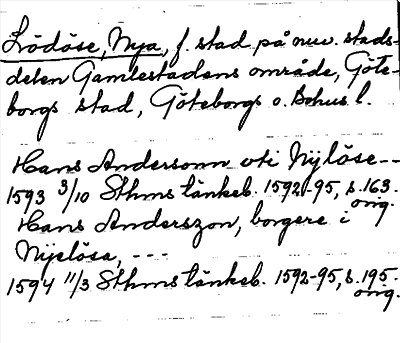 Lödöse, Nya, f. stad på nuv. stads-
delen Gamlestadens område, Göte-
borgs stad, Göteborgs o. Bohus l.
Hans Andersonn uti Nÿlöse --
1593 3/10 Sthms tänkeb. 1592-95, s. 163.
orig.
Hans Anderszon, borgere i
Nÿelösa, ---
1594 11/3 Sthms tänkeb. 1592-95, s. 195.
orig.